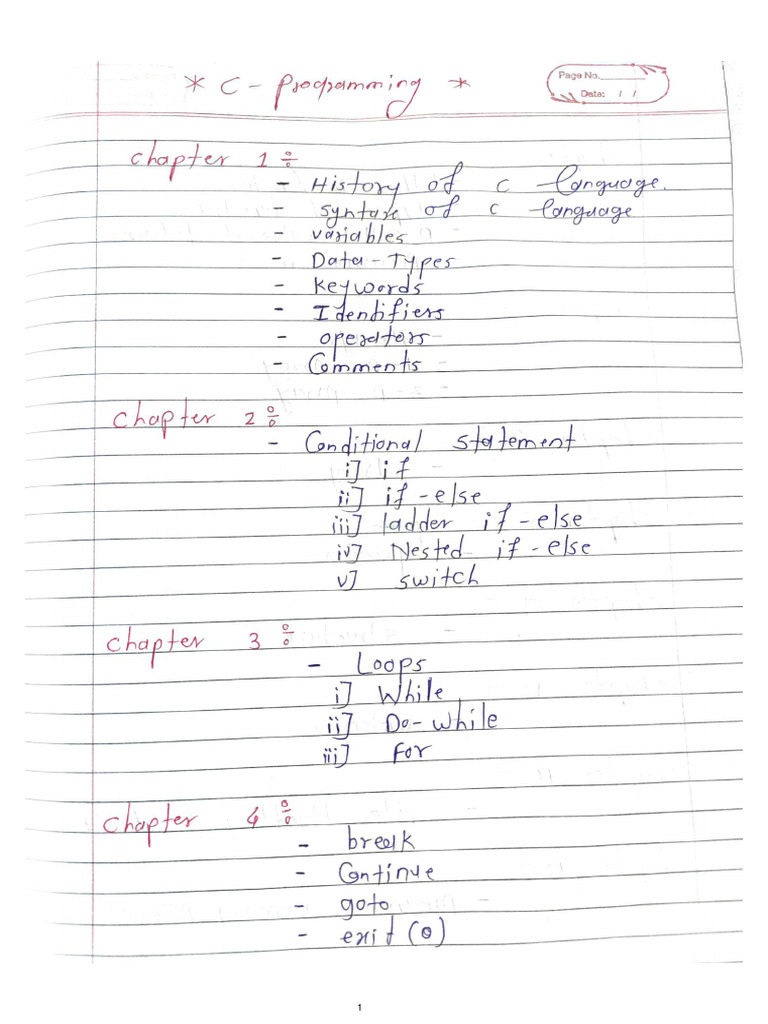 * C - Programming *
Page No.
Date: / /
Chapter 1 :
- History of C - Language.
- Syntax of C - Language
- Variables
- Data - Types
- Keywords
- Identifiers
- Operators
- Comments
Chapter 2 :
- Conditional Statement
i] if
ii] if - else
iii] ladder if - else
iv] Nested if - else
v] switch
Chapter 3 :
- Loops
i] While
ii] Do - While
iii] for
Chapter 4 :
- break
- Continue
- goto
- exit (0)
1